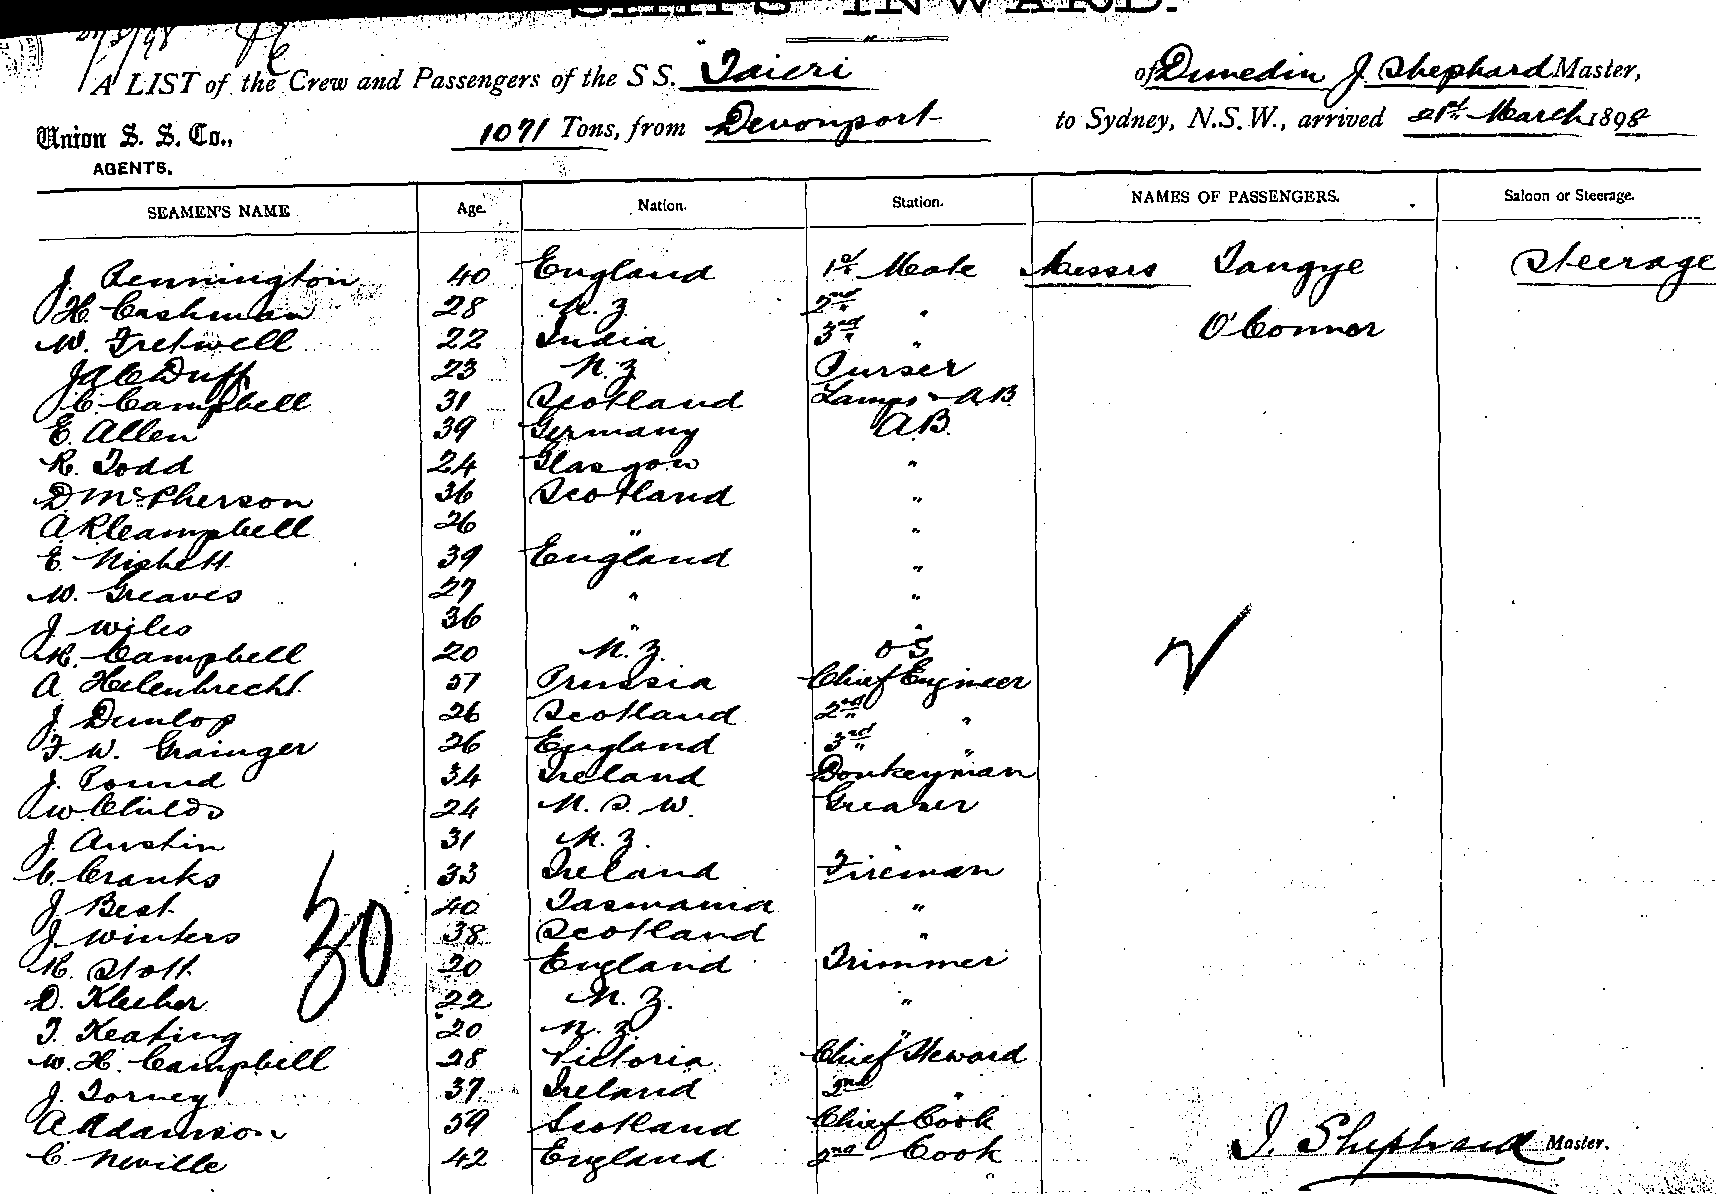 SHIPS INWARD.
21/3/98
A LIST of the Crew and Passengers of the S S. Taieri of Dunedin J. Shephard Master,
Union S. S. Co., 1071 Tons, from Devonport to Sydney, N.S.W., arrived 21st March 1898
AGENTS.
SEAMEN'S NAME Age. Nation. Station. NAMES OF PASSENGERS. Saloon or Steerage.
J. Pennington 40 England 1st Mate Messrs Tangye Steerage
H. Cashman 28 N. Z 2nd "
W. Fretwell 22 India 3rd " O'Connor
J A C Duff 23 N. Z Purser
C. Campbell 31 Scotland Lamps & AB
E. Allen 39 Germany A.B.
R. Todd 24 Glasgow "
D. McPherson 36 Scotland "
A. R. Campbell 26 " "
E. Nisbett 39 England "
W. Greaves 27 " "
J. Wiles 36 " "
R. Campbell 20 N. Z. OS
A Helenbrecht 57 Prussia Chief Engineer
J. Dunlop 26 Scotland 2nd "
F. W. Grainger 26 England 3rd "
J. Pound 34 Ireland Donkeyman
W Childs 24 N. S. W. Greaser
J. Austin 31 N. Z. "
C. Cranks 33 Ireland Fireman
J. Best 40 Tasmania "
J. Winters 38 Scotland "
30
R. Stott 20 England Trimmer
D. Kleeher 22 N. Z. "
T. Keating 20 N. Z. "
W. H. Campbell 28 Victoria Chief Steward
J. Torney 37 Ireland 2nd "
A Adamson 59 Scotland Chief Cook
C. Neville 42 England 2nd Cook
J. Shephard Master.